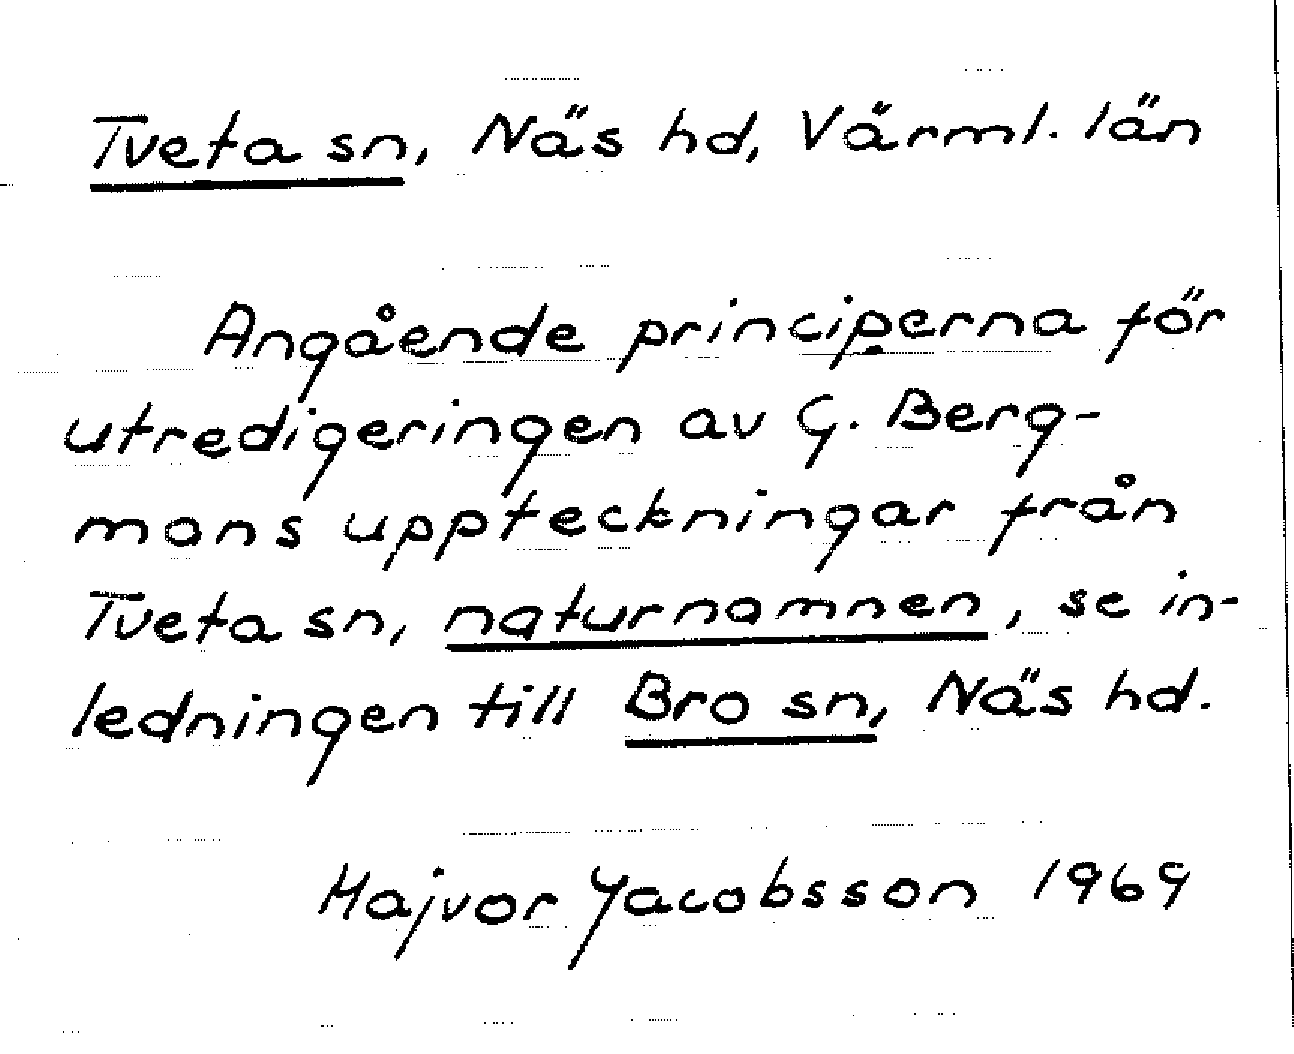 Tveta sn, Näs hd, Värml. län
Angående principerna för
utredigeringen av G. Berg-
mans uppteckningar från
Tveta sn, naturnamnen, se in-
ledningen till Bro sn, Näs hd.
Majvor Jacobsson 1969